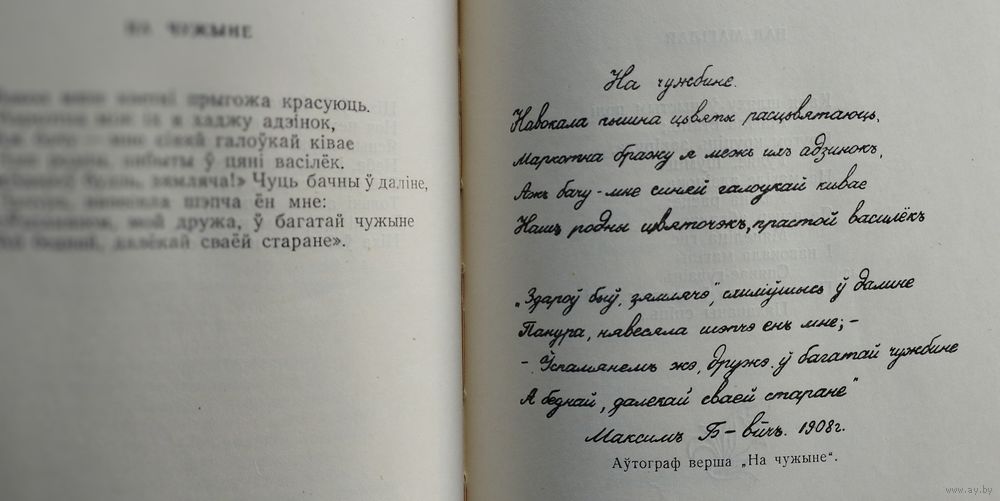 НА ЧУЖЫНЕ
прыгожа красуюць.
я хаджу адзінок,
мне сіняй галоўкай ківае
забыты ў цяні васілёк.
зямляча!» Чуць бачны ў даліне,
шэпча ён мне:
мой дружа, ў багатай чужыне
далёкай сваёй старане».
На чужбине.
Навокала пышна цьвяты расцьвятаюць,
Маркотна бражу я межъ ихъ адзинокъ,
Ажъ бачу - мне синяй галоукай кивае
Нашъ родны цьвяточэкъ, прастой василёкъ
„Здароў быў, зямлячэ", схиліўшысь ў далине
Панура, нявесяла шэпчэ ёнъ мне; -
- Ўспамянемъ жэ, дружэ, ў багатай чужбине
А беднай, далекай сваей старане"
Максимъ Б-вичъ. 1908г.
Аўтограф верша „На чужыне".
www.ay.by